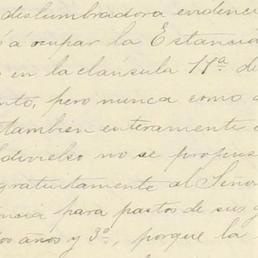 deslumbradora evidenci
ó a ocupar la Estancia
en la cláusula 11ª de
nto, pero nunca como
tambien enteramente
no se propus
gratuitamente al Señor
ncia para pastos de sus g
os años y 3º, porque la